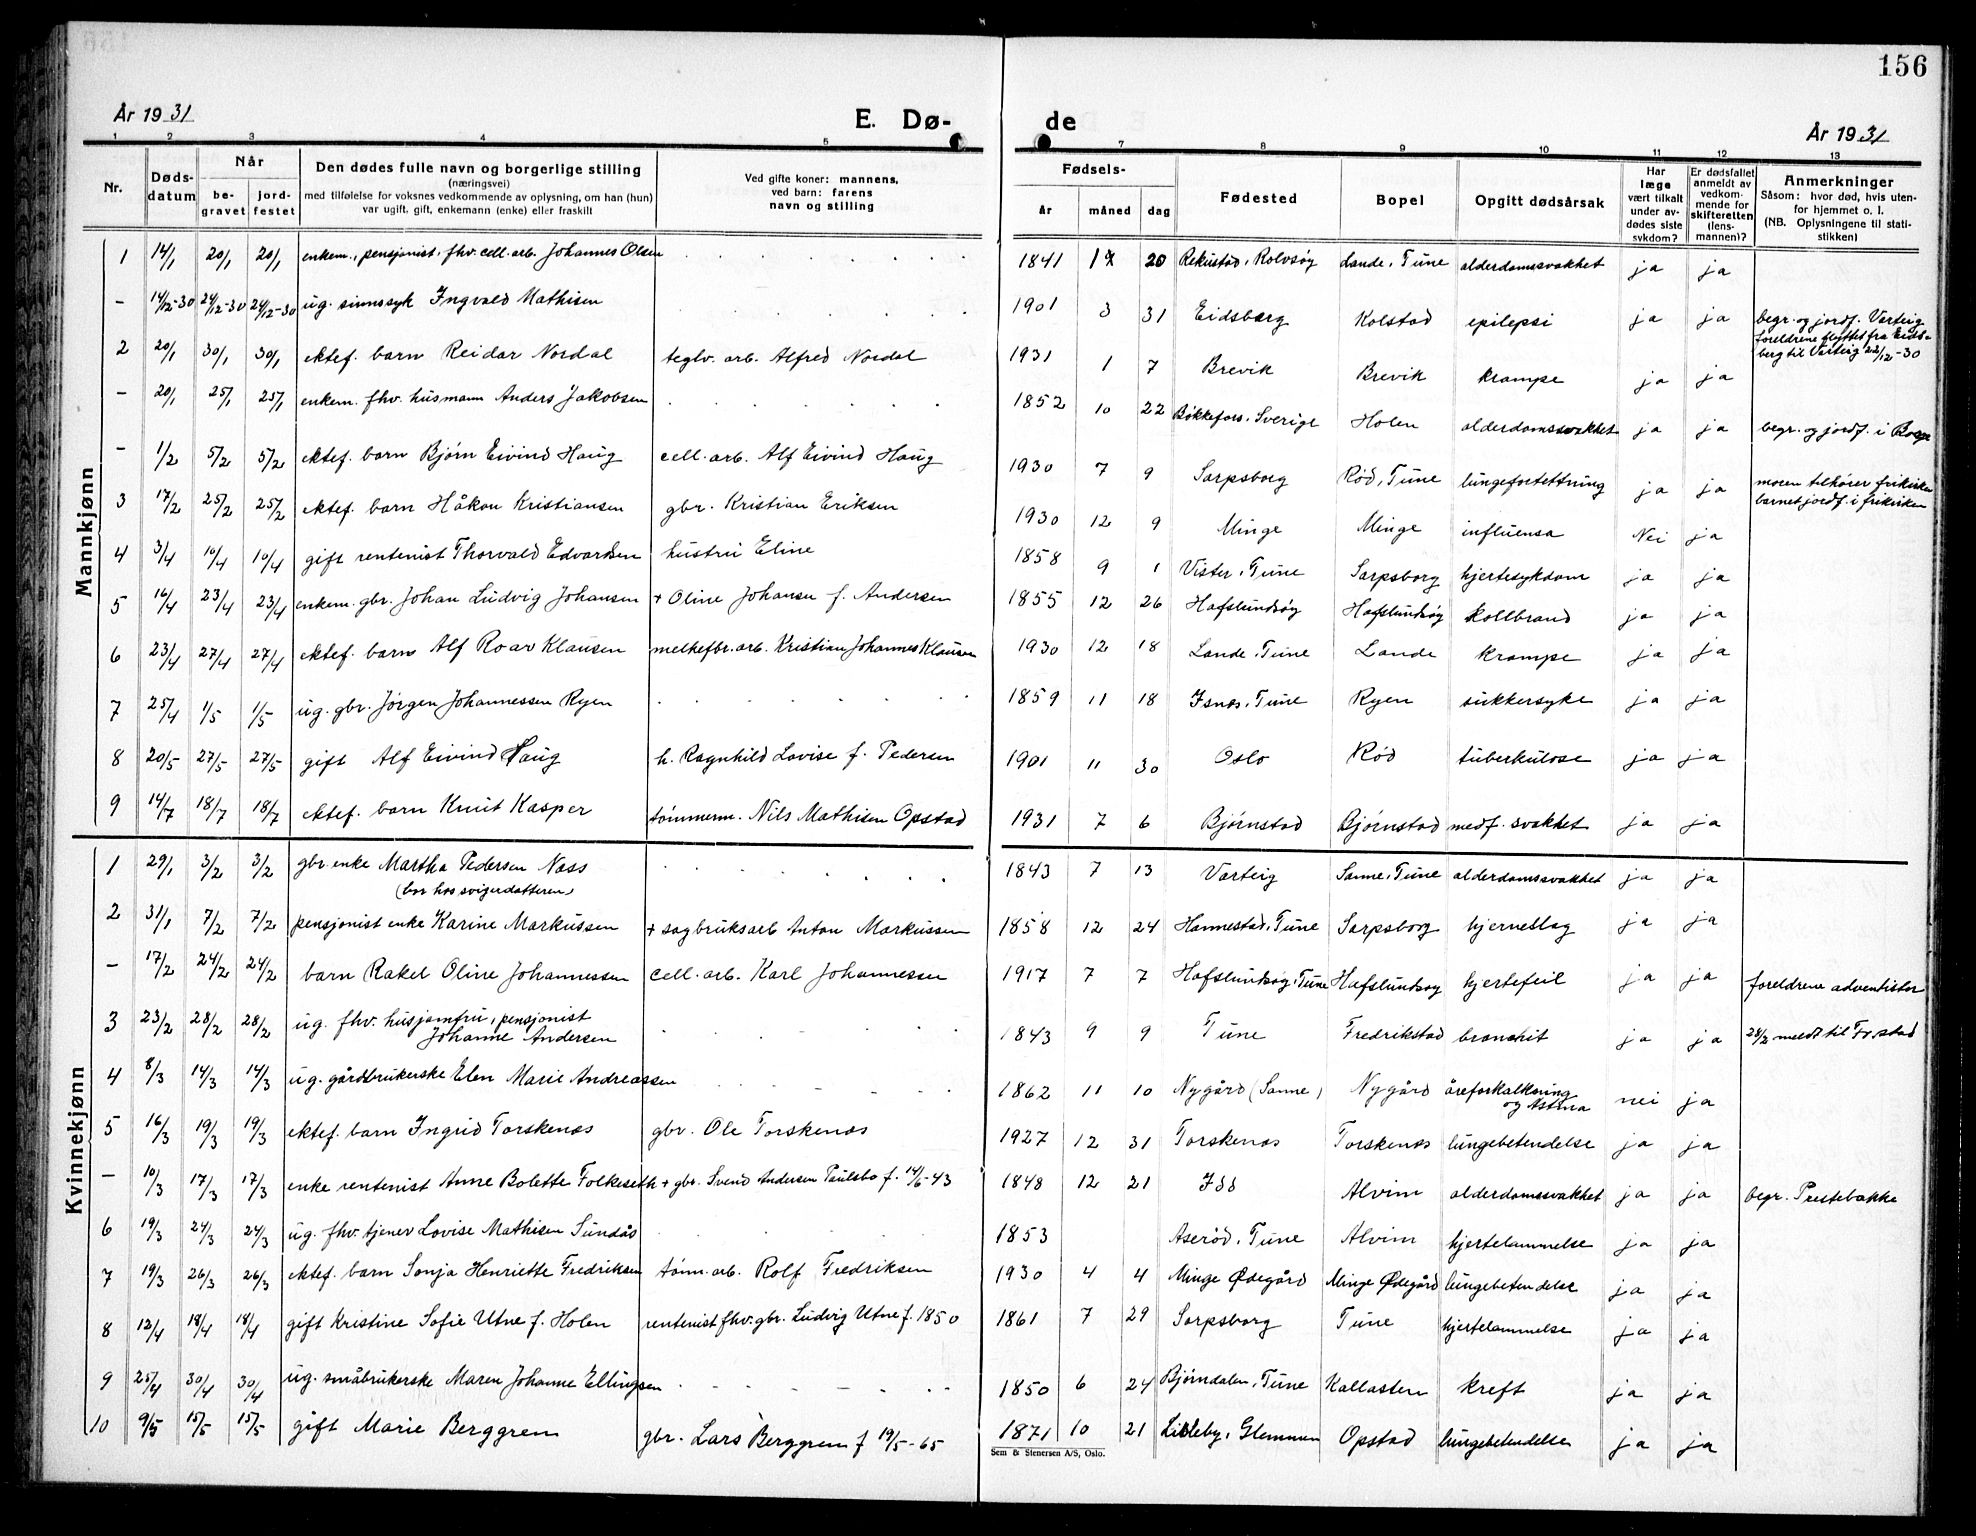 156
År 1931
E. Dø-
de
År 1931
1 2 3 4 5 7 8 9 10 11 12 13
Nr.
Døds-
datum
Når
be-
gravet
jord-
festet
Den dødes fulle navn og borgerlige stilling
(næringsvei)
med tilføielse for voksnes vedkommende av oplysning, om han (hun)
var ugift, gift, enkemann (enke) eller fraskilt
Ved gifte koner: mannens,
ved barn: farens
navn og stilling
Fødsels-
år måned dag
Fødested
Bopel
Opgitt dødsårsak
Har
læge
vært tilkalt
under av-
dødes siste
sykdom?
Er dødsfallet
anmeldt av
vedkom-
mende for
skifteretten
(lens-
mannen)?
Anmerkninger
Såsom: hvor død, hvis uten-
for hjemmet o. l.
(NB. Oplysningene til stati-
stikken)
Mannkjønn
1 14/1 20/1 20/1 enkem., pensjonist, fhv. cell. arb. Johannes Olsen 1841 12 20 Rekustad, Rolvsøy Lande, Tune alderdomssvakhet ja ja
- 14/12-30 24/12-30 24/12-30 ug. sinnssyk Ingvald Mathisen 1901 3 31 Eidsberg Kolstad epilepsi ja ja begr. og jordf. Varteig
foreldrene flyttet fra Eids-
berg til Varteig 22/12-30
2 20/1 30/1 30/1 ektef. barn Reidar Nordal teglv. arb. Alfred Nordal 1931 1 7 Brevik Brevik krampe ja ja
- 20/1 25/1 25/1 enkem. fhv. husmann Anders Jakobsen 1852 10 22 Bökkefors, Sverige Holen alderdomssvakhet ja ja begr. og jordf. i Borge
- 1/2 5/2 5/2 ektef. barn Bjørn Eivind Haug cell. arb. Alf Eivind Haug 1930 7 9 Sarpsborg Rød, Tune lungefortettning ja ja moren tilhører frikirken
barnet jordf. i frikirken
3 17/2 25/2 25/2 ektef. barn Håkon Kristiansen gbr. Kristian Eriksen 1930 12 9 Minge Minge influensa Nei ja
4 3/4 10/4 10/4 gift rentenist Thorvald Edvardsen hustru Eline 1858 9 1 Vister, Tune Sarpsborg hjertesykdom ja ja
5 16/4 23/4 23/4 enkem. gbr. Johan Ludvig Johansen + Oline Johansen f. Andersen 1855 12 26 Hafslundsøy Hafslundsøy koldbrand ja ja
6 23/4 27/4 27/4 ektef. barn Alf Roar Klausen melkefbr. arb. Kristian Johannes Klausen 1930 12 18 Lande, Tune Lande krampe ja ja
7 25/4 1/5 1/5 ug. gbr. Jørgen Johannessen Ryen 1859 11 18 Isnes, Tune Ryen sukkersyke ja ja
8 20/5 27/5 27/5 gift Alf Eivind Haug h. Ragnhild Lovise f. Pedersen 1901 11 30 Oslo Rød tuberkulose ja ja
9 14/7 18/7 18/7 ektef. barn Knut Kasper tømmerm. Nils Mathisen Opstad 1931 7 6 Bjørnstad Bjørnstad medf. svakhet ja ja
Kvinnekjønn
1 29/1 3/2 3/2 gbr. enke Martha Pedersen Næss
(bor hos svigerdatteren) 1843 7 13 Varteig Sanne, Tune alderdomssvakhet ja ja
2 31/1 7/2 7/2 pensjonist enke Karine Markussen + sagbruksarb Anton Markussen 1858 12 24 Hannestad, Tune Sarpsborg hjerneslag ja ja
- 17/2 24/2 24/2 barn Rakel Oline Johannessen cell. arb. Karl Johannessen 1917 7 7 Hafslundsøy, Tune Hafslundsøy hjertefeil ja ja foreldrene adventister
3 23/2 28/2 28/2 ug. fhv. husjomfru, pensjonist
Johanne Andersen 1843 9 9 Tune Fredrikstad bronchit ja ja 28/2 meldt til Fr.stad
4 8/3 14/3 14/3 ug. gårdbrukerske Elen Marie Andreassen 1862 11 10 Nygård (Sanne) Nygård åreforkalkning
og Astma nei ja
5 16/3 19/3 19/3 ektef. barn Ingrid Torskenæs gbr. Ole Torskenæs 1927 12 31 Torskenæs Torskenæs lungebetendelse ja ja
- 10/3 17/3 17/3 enke rentenist Anne Bolette Folkeseth + gbr. Svend Andersen Paulsbo f. 14/6-43 1848 12 21 Idd Alvim alderdomssvakhet ja ja begr. Prestebakke
6 19/3 24/3 24/3 ug. fhv. tjener Lovise Mathisen Sundås 1853 Aserød, Tune Alvim hjertelammelse ja ja
7 19/3 26/3 26/3 ektef. barn Sonja Henriette Fredriksen tømm. arb. Rolf Fredriksen 1930 4 4 Minge Ødegård Minge Ødegård lungebetendelse ja ja
8 12/4 18/4 18/4 gift Kristine Sofie Utne f. Holen rentenist fhv. gbr. Ludvig Utne f. 1850 1861 7 29 Sarpsborg Tune hjertelammelse ja ja
9 25/4 30/4 30/4 ug. småbrukerske Maren Johanne Ellingsen 1850 6 24 Bjørndalen, Tune Kallasten kreft ja ja
10 9/5 15/5 15/5 gift Marie Berggren gbr. Lars Berggren f 19/5-65 1871 10 21 Lilleby, Glemmen Opstad lungebetendelse ja ja
Sem & Stenersen A/S, Oslo.